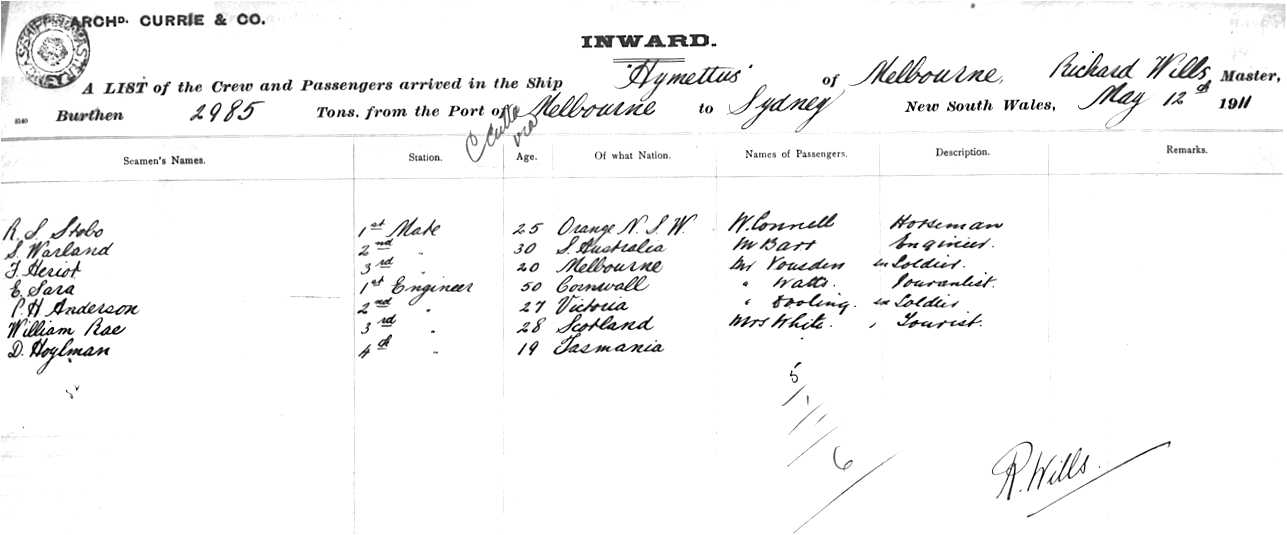 ARCHD. CURRIE & CO.
INWARD.
A LIST of the Crew and Passengers arrived in the Ship "Hymettus" of Melbourne, Richard Wills, Master,
Burthen 2985 Tons. from the Port of Melbourne to Sydney New South Wales, May 12th 1911
via
Seamen's Names. Station. Age. Of what Nation. Names of Passengers. Description. Remarks.
R. S. Stobo 1st Mate 25 Orange N. S. W. W. Connell Horseman
S. Warland 2nd " 30 S. Australia M Barr Engineer.
F. Heriot 3rd " 20 Melbourne Mr Vousden Soldier.
E. Sara 1st Engineer 50 Cornwall " Watts. Jouranlist.
P. H Anderson 2nd " 27 Victoria " Dooling. Soldier
William Rae 3rd " 28 Scotland Mrs White. Tourist.
D. Hoylman 4th " 19 Tasmania
5
6
R. Wills.